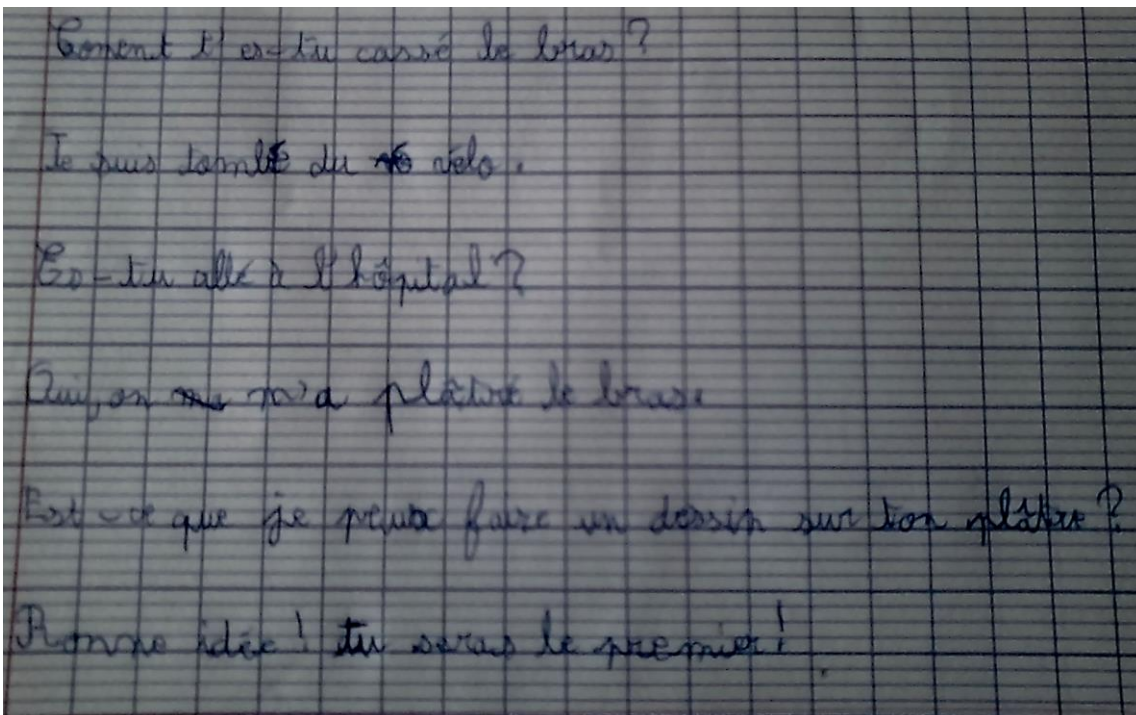 Coment t'es-tu cassé le bras ?
Je suis tombé du vélo.
Es-tu allé à l'hôpital ?
Oui, on m'a plâtré le bras.
Est-ce que je peux faire un dessin sur ton plâtre ?
Bonne idée ! tu seras le premier !